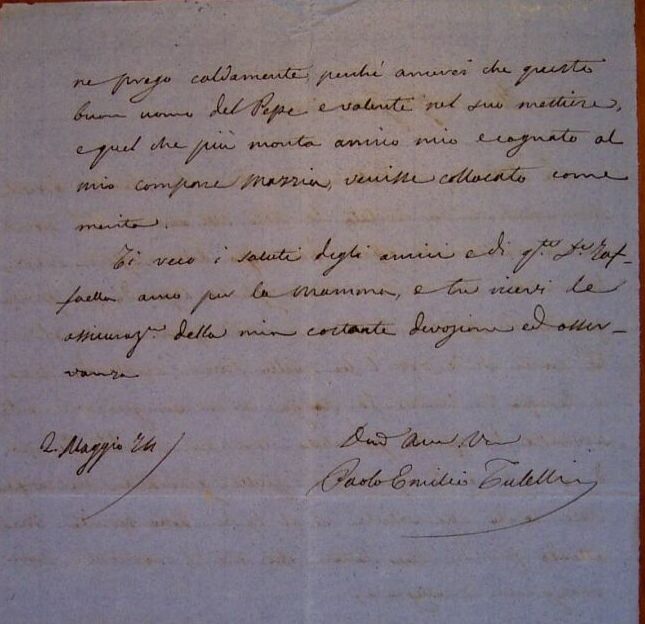 ne prego caldamente, perché amerei che questo
buon uomo del Pepe e valente nel suo mestiere,
e quel che più monta amico mio e cognato al
mio compare Mazzia, venisse collocato come
merita.
Ti reco i saluti degli amici e di q.ta
faella anco per la mamma, e tu ricevi le
assicuraz.ni della mia costante devozione ed osser-
vanza
2. Maggio 74
Paolo Emilio Tulelli